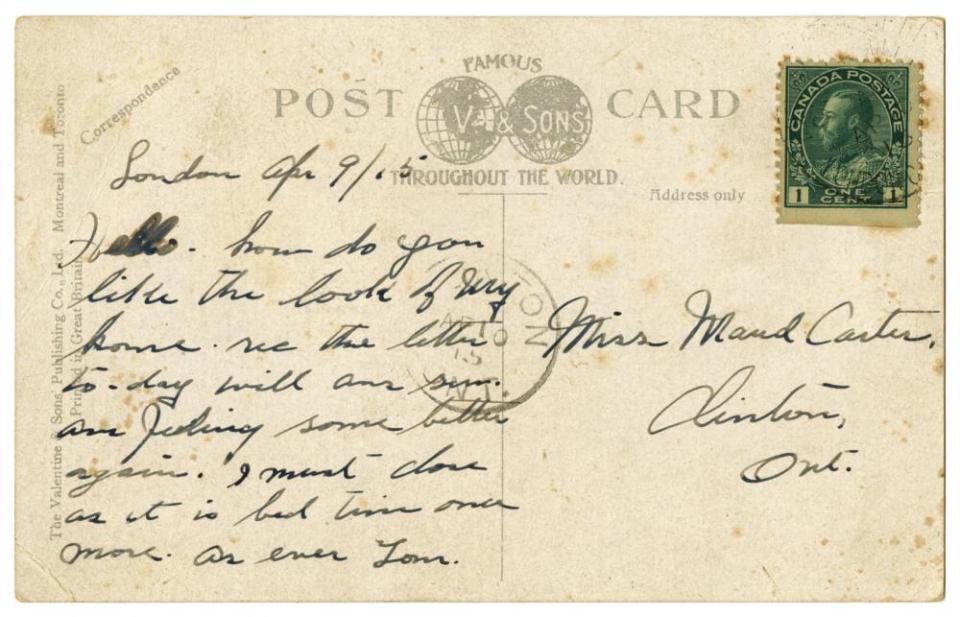 FAMOUS
POST CARD
V. & SONS
THROUGHOUT THE WORLD.
Correspondance
Address only
The Valentine & Sons' Publishing Co., Ltd. Montreal and Toronto
Printed in Great Britain
CANADA POSTAGE
1 ONE CENT 1
London Apr 9/15
Hello. how do you
like the look of my
home. rec the letter
to-day will ans sun.
am feeling some better
again. I must close
as it is bed time once
more. as ever Tom.
Miss Maud Carter.
Clinton,
Ont.
ON
AP 10
15
ONT